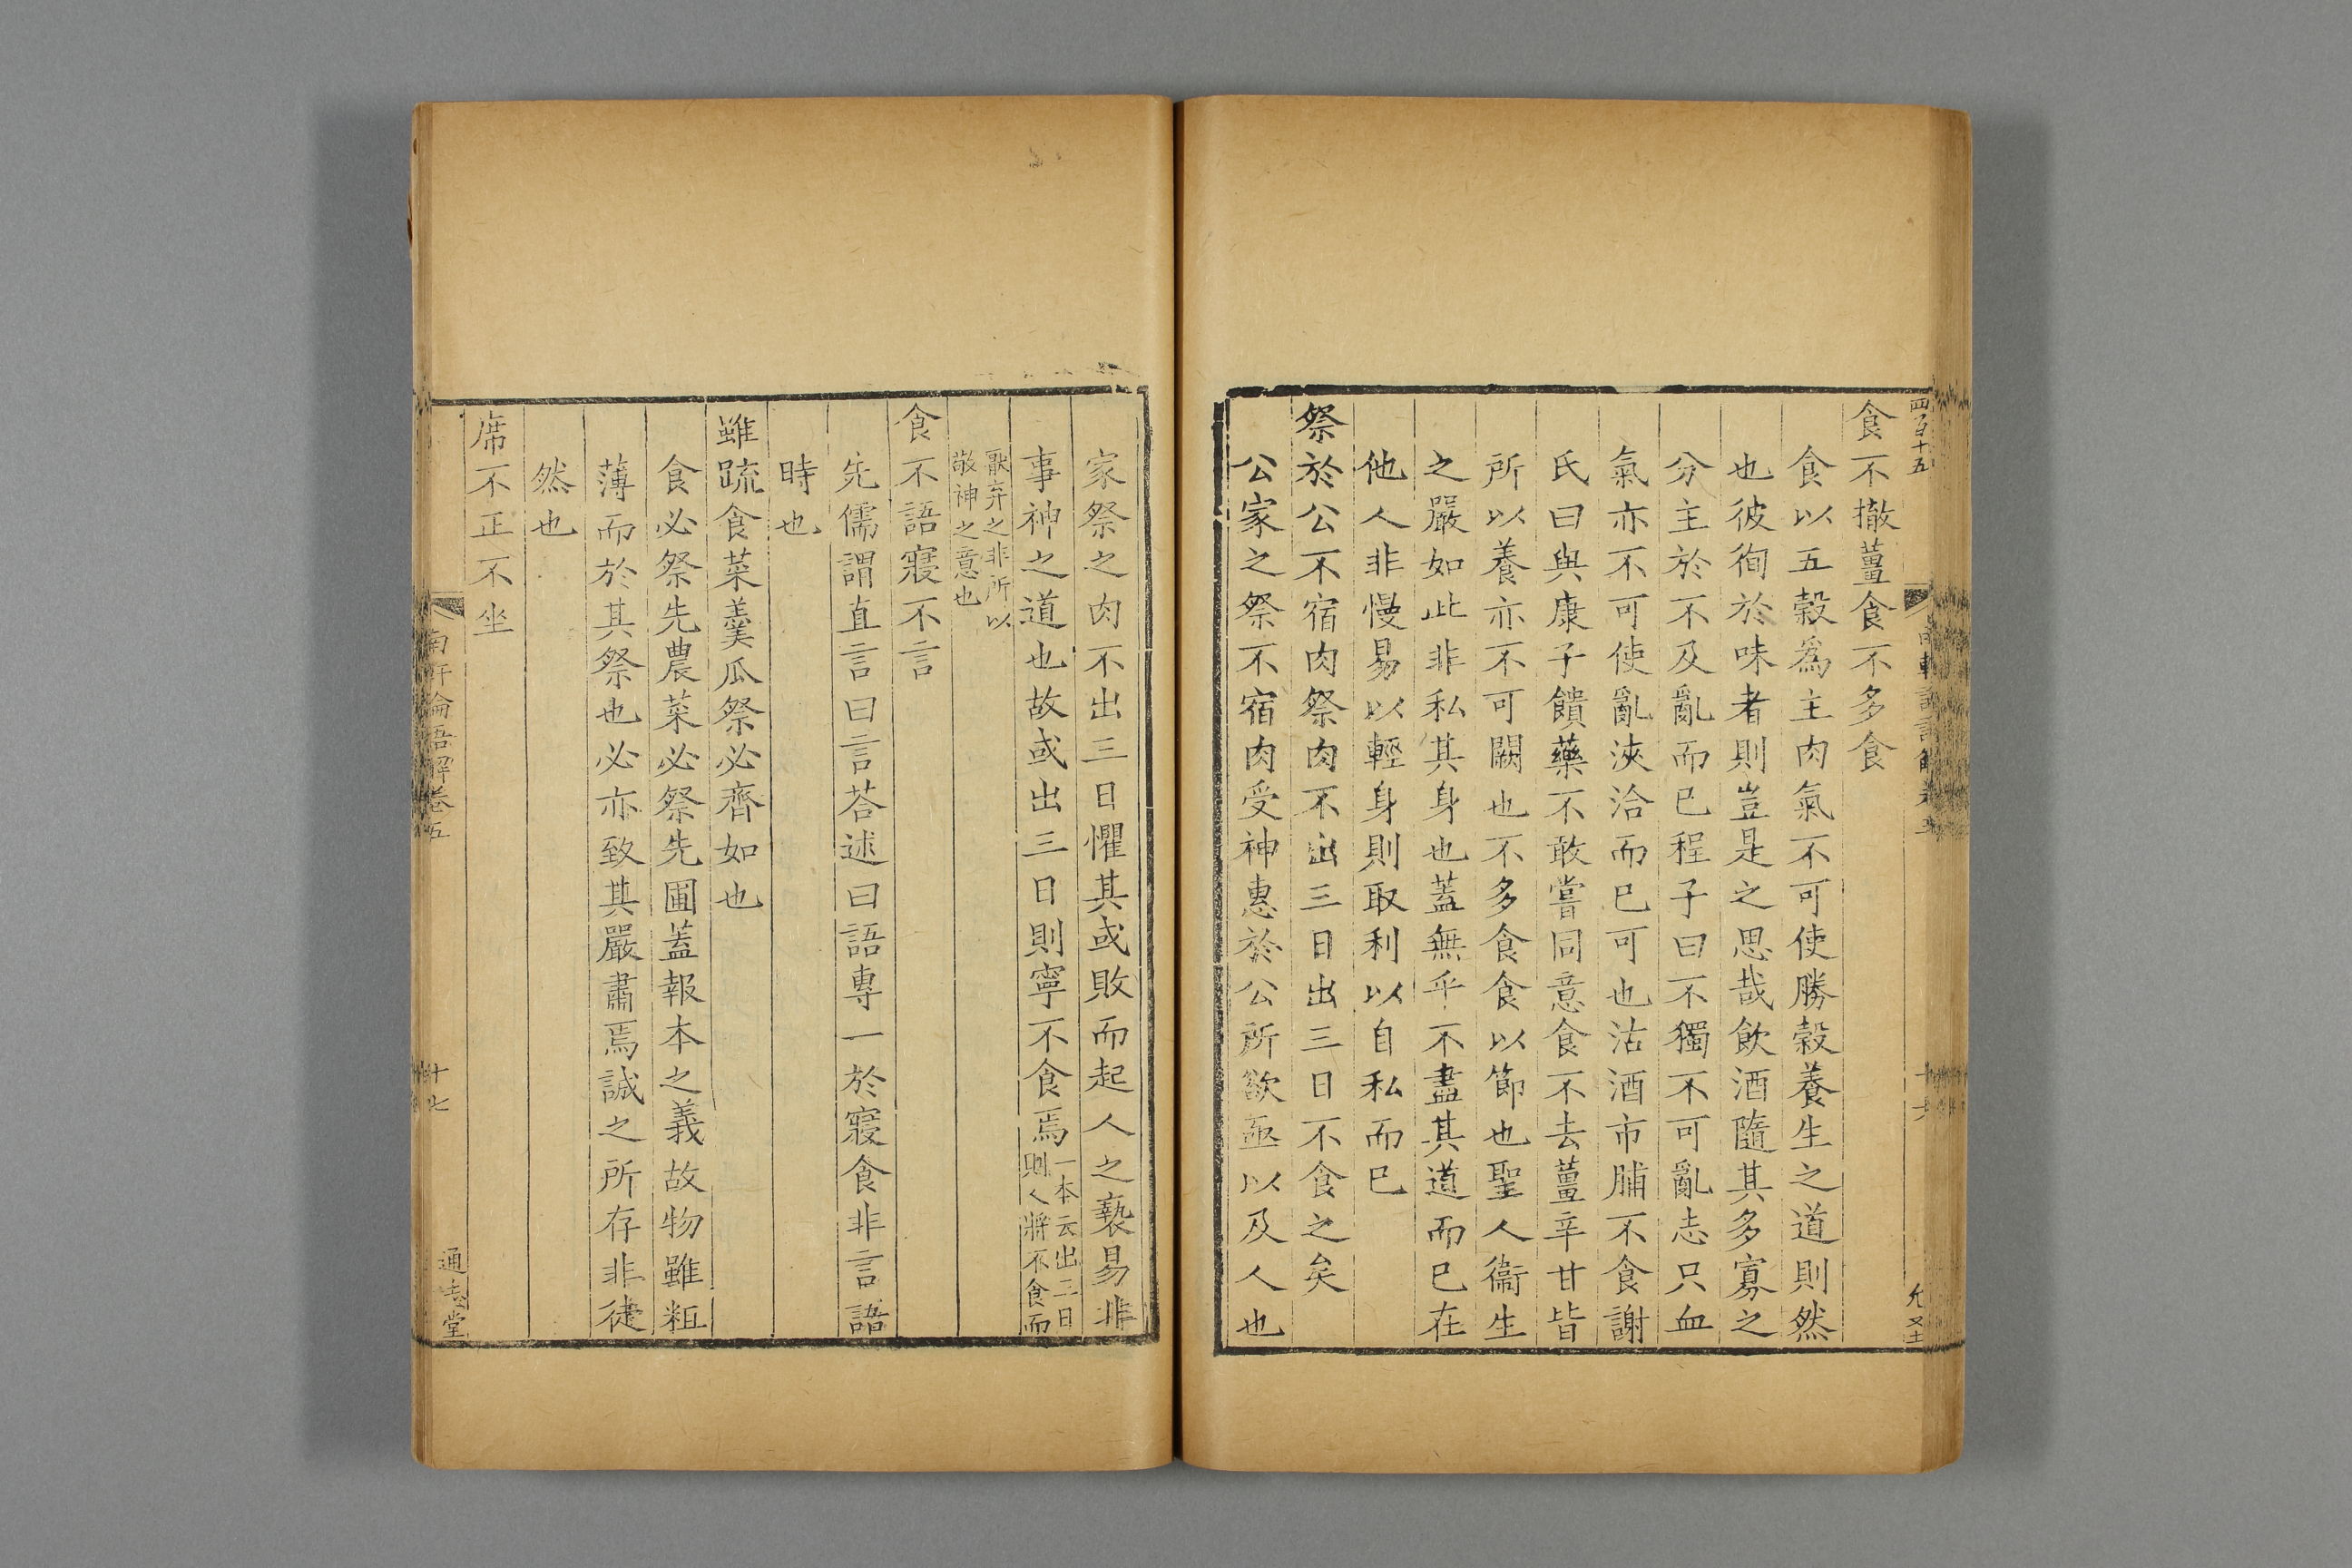 四百十五
食不撤薑食不多食
食以五穀爲主肉氣不可使勝穀養生之道則然
也彼徇於味者則豈是之思哉飲酒隨其多寡之
分主於不及亂而已程子曰不獨不可亂志只血
氣亦不可使亂浹洽而已可也沽酒市脯不食謝
氏曰與康子饋藥不敢嘗同意食不去薑辛甘皆
所以養亦不可闕也不多食食以節也聖人衞生
之嚴如此非私其身也蓋無乎不盡其道而已在
他人非慢易以輕身則取利以自私而已
祭於公不宿肉祭肉不出三日出三日不食之矣
公家之祭不宿肉受神惠於公所欲亟以及人也
家祭之肉不出三日懼其或敗而起人之褻易非
事神之道也故或出三日則寧不食焉
一本云出三日
則人將不食而
厭弃之非所以
敬神之意也
食不語寢不言
先儒謂直言曰言荅述曰語專一於寢食非言語
時也
雖疏食菜羹瓜祭必齊如也
食必祭先農菜必祭先圃蓋報本之義故物雖粗
薄而於其祭也必亦致其嚴肅焉誠之所存非徒
然也
席不正不坐
南軒論語解卷五
十七
通志堂